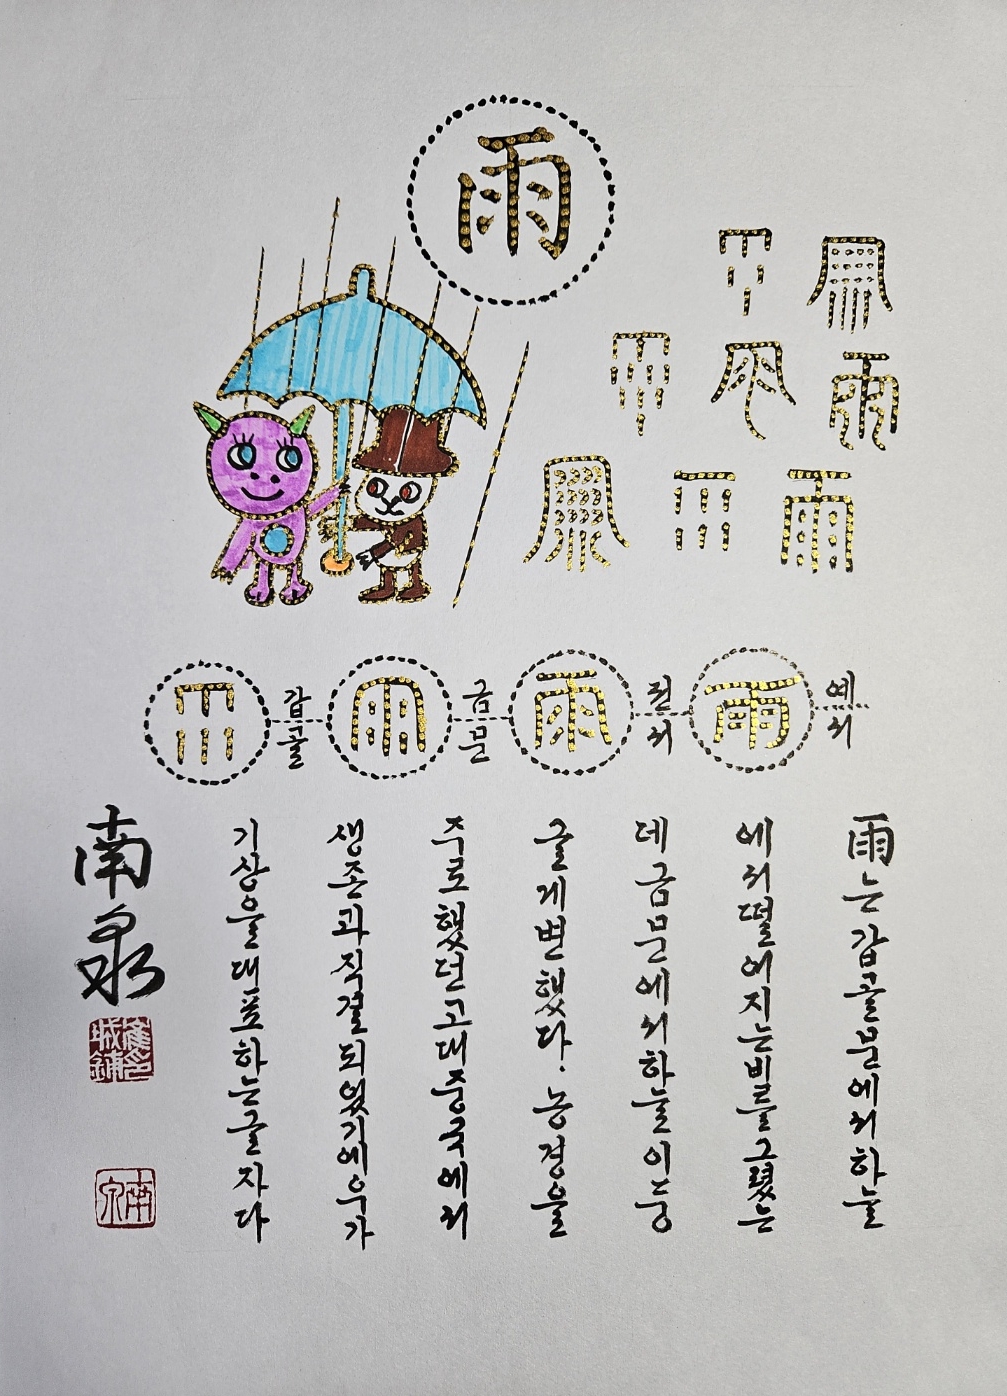 雨
갑골
금문
전서
예서
雨는 갑골문에서 하늘
에서 떨어지는 비를 그렸는
데 금문에서 하늘이 둥
글게 변했다. 농경을
주로 했던 고대 중국에서
생존과 직결되었기에 우가
기상을 대표하는 글자다
南泉